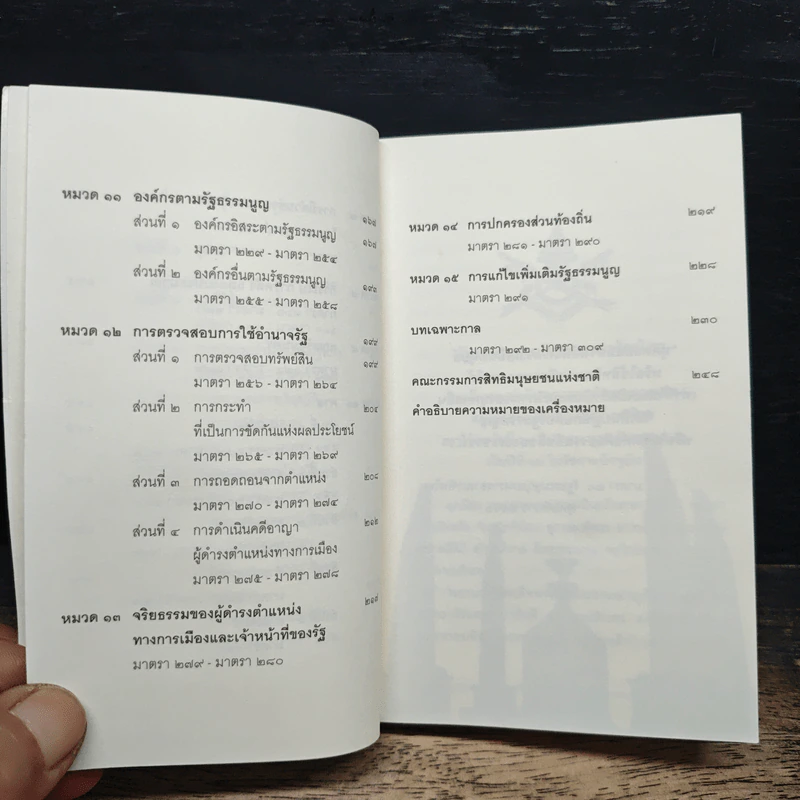 หมวด ๑๑ องค์กรตามรัฐธรรมนูญ ๑๖๔
ส่วนที่ ๑ องค์กรอิสระตามรัฐธรรมนูญ ๑๖๗
มาตรา ๒๒๙ - มาตรา ๒๕๔
ส่วนที่ ๒ องค์กรอื่นตามรัฐธรรมนูญ
มาตรา ๒๕๕ - มาตรา ๒๕๘
หมวด ๑๒ การตรวจสอบการใช้อำนาจรัฐ ๑๙๙
ส่วนที่ ๑ การตรวจสอบทรัพย์สิน ๑๙๙
มาตรา ๒๕๙ - มาตรา ๒๖๔
ส่วนที่ ๒ การกระทำ ๒๐๔
ที่เป็นการขัดกันแห่งผลประโยชน์
มาตรา ๒๖๕ - มาตรา ๒๖๙
ส่วนที่ ๓ การถอดถอนจากตำแหน่ง ๒๐๘
มาตรา ๒๗๐ - มาตรา ๒๗๔
ส่วนที่ ๔ การดำเนินคดีอาญา ๒๑๒
ผู้ดำรงตำแหน่งทางการเมือง
มาตรา ๒๗๕ - มาตรา ๒๗๘
หมวด ๑๓ จริยธรรมของผู้ดำรงตำแหน่ง ๒๑๗
ทางการเมืองและเจ้าหน้าที่ของรัฐ
มาตรา ๒๗๙ - มาตรา ๒๘๐
หมวด ๑๔ การปกครองส่วนท้องถิ่น ๒๑๙
มาตรา ๒๘๑ - มาตรา ๒๙๐
หมวด ๑๕ การแก้ไขเพิ่มเติมรัฐธรรมนูญ ๒๒๘
มาตรา ๒๙๑
บทเฉพาะกาล ๒๓๐
มาตรา ๒๙๒ - มาตรา ๓๐๙
คณะกรรมการสิทธิมนุษยชนแห่งชาติ ๒๔๘
คำอธิบายความหมายของเครื่องหมาย